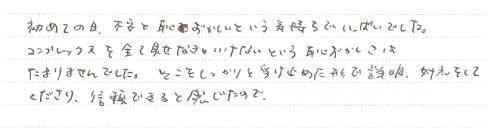 初めての日、不安と恥ずおかしいという気持ちでいっぱいでした。
コンプレックスを全て見せなきゃいけないという恥ずかしさは
たまりませんでした。そこをしっかりと受け止めた形で説明、対応をして
くださり、信頼できると感じたので。